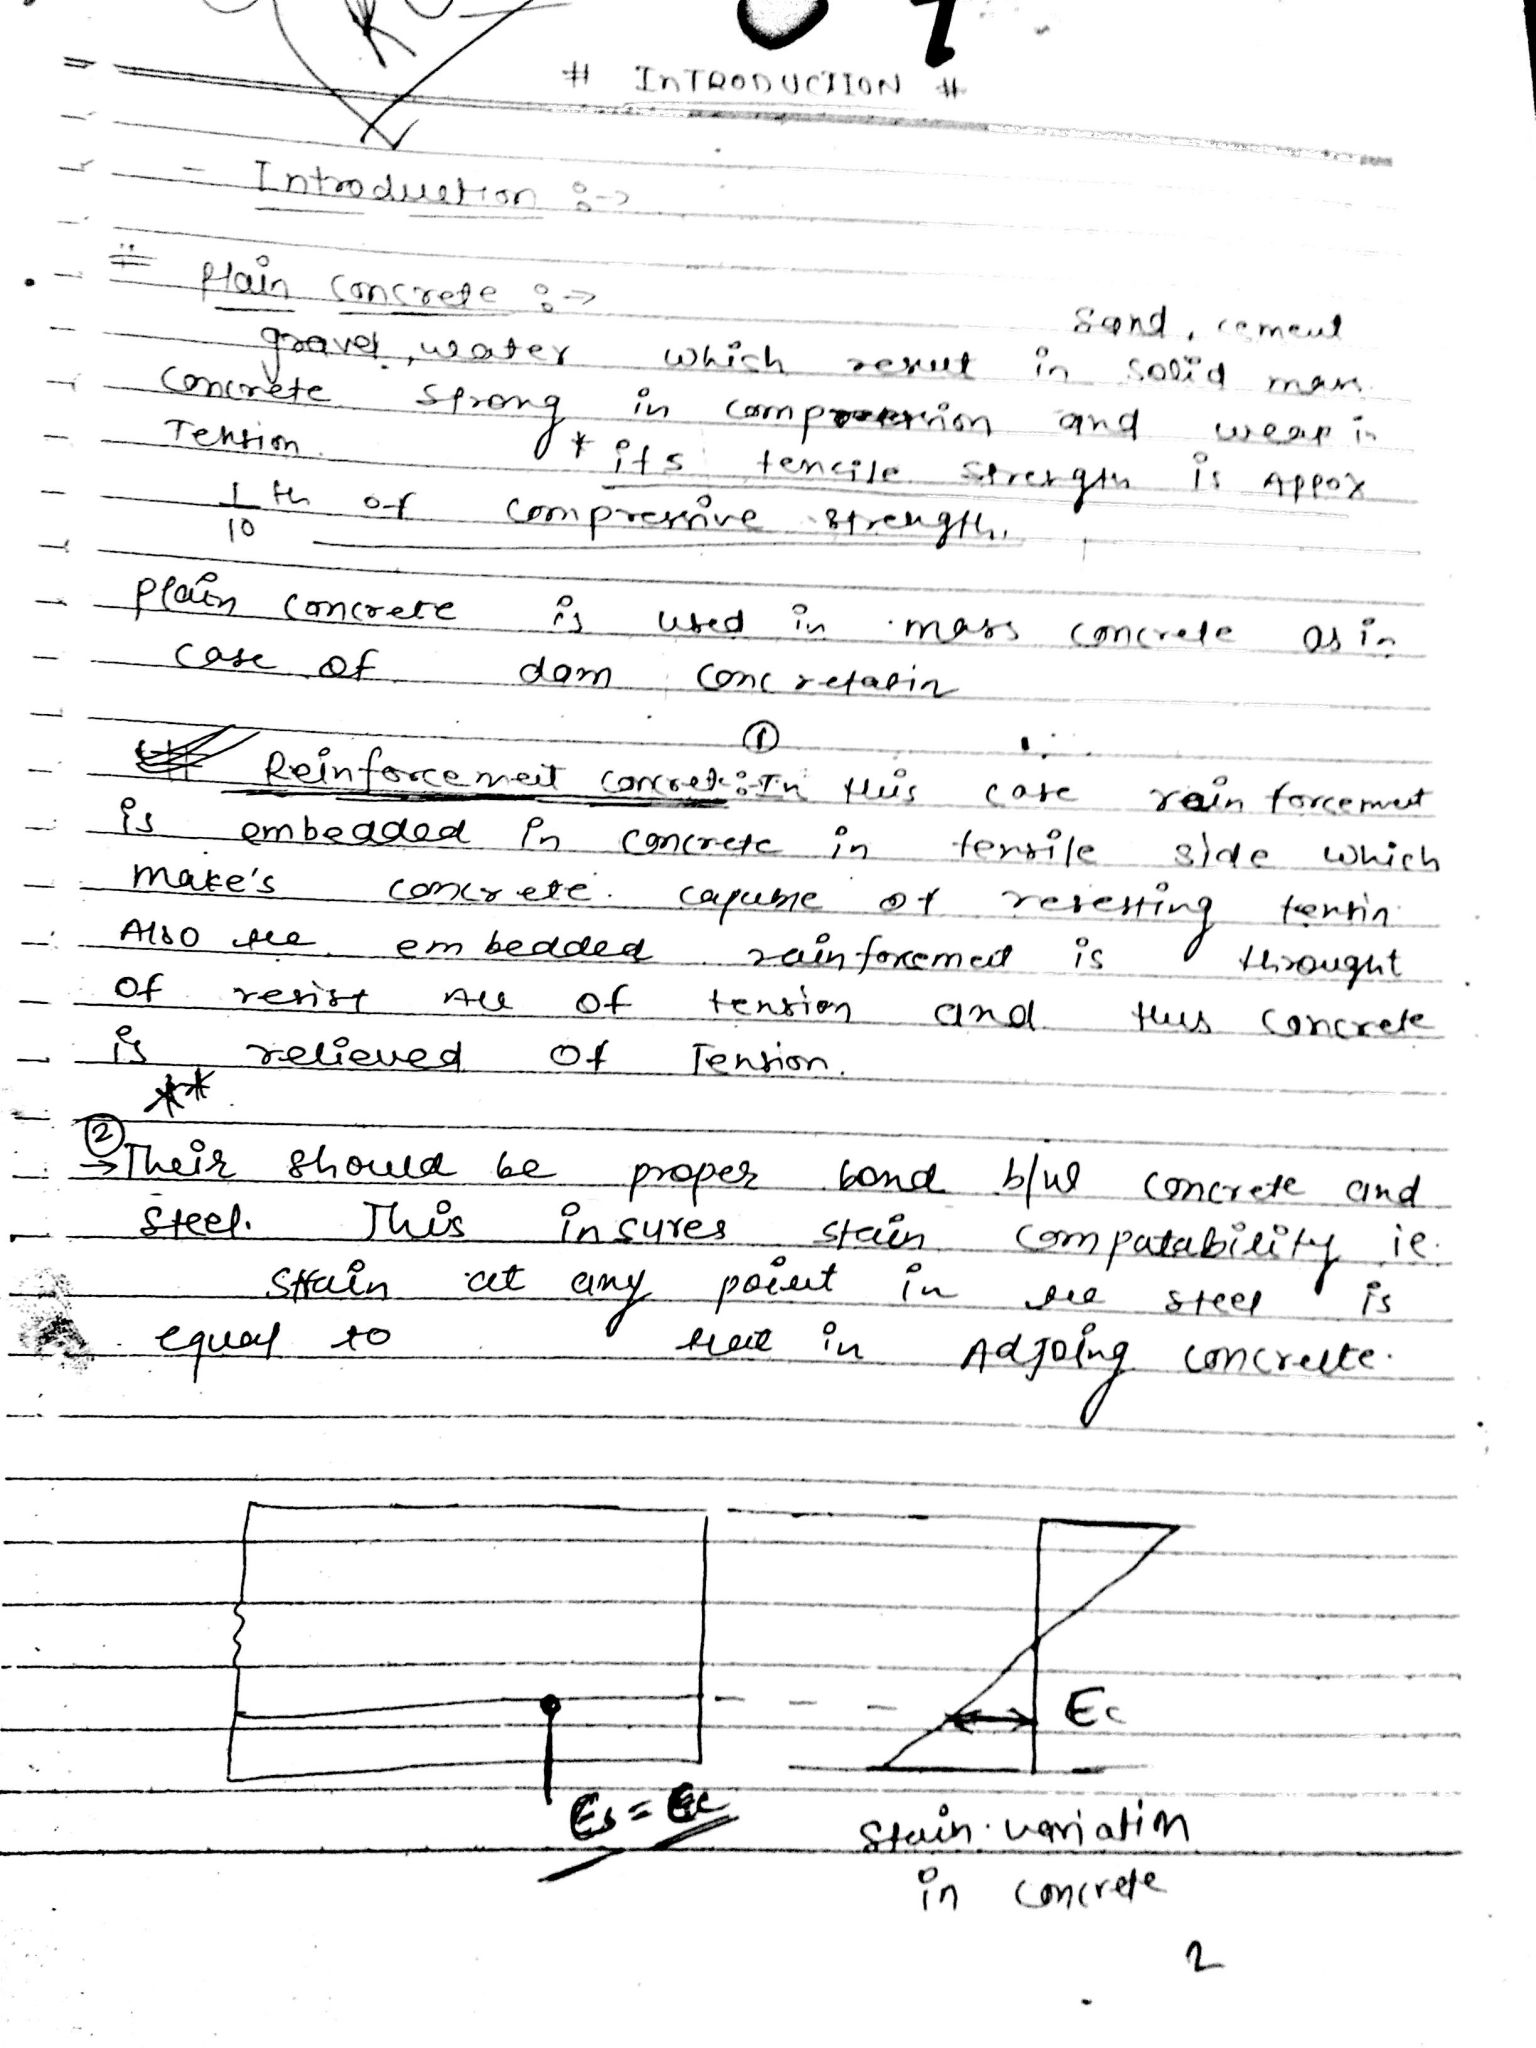 # INTRODUCTION #
- Introduction :->
# Plain concrete :->
sand, cement
gravel, water which result in solid mass.
Concrete strong in compression and weak in
Tension. * its tencile strength is Appox
1/10 th of compressive strength.
plain concrete is used in mass concrete as in
case of dam concretatin
①
# Reinforcement concrete :- In this case rainforcement
is embedded in concrete in tensile side which
make's concrete capable of resesting tension
Also the embedded rainforcement is throught
of resist All of tension and thus concrete
is relieved of Tension.
**
② → Their should be proper bond b/w concrete and
steel. This insures stain compatability ie.
strain at any point in the steel is
equal to that in Adjoing concrete.
Ec
Es = Ec
Stain variatin
in concrete
2